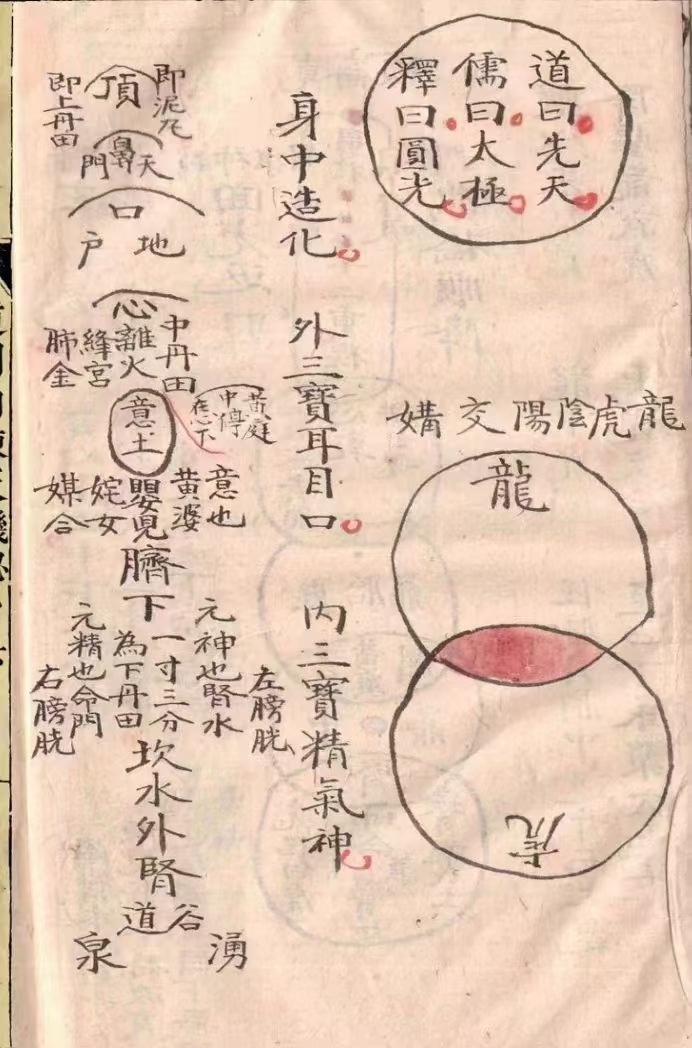 道曰先天
儒曰太極
釋曰圓光
龍虎陰陽交媾
龍
虎
身中造化
外三寶耳目口
內三寶精氣神
即泥丸
頂
即上丹田
天鼻門
口
地戶
心
中丹田
離火
縫宮
肺金
黃庭
中停
在心下
意土
意也
黃婆
嬰兒
姹女
媒合
臍下
左膀胱
元神也腎水
一寸三分
為下丹田
元精也命門
右膀胱
坎水外腎
谷道
湧泉